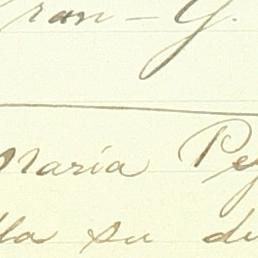 ran - G.
Maria Pe
lla su de